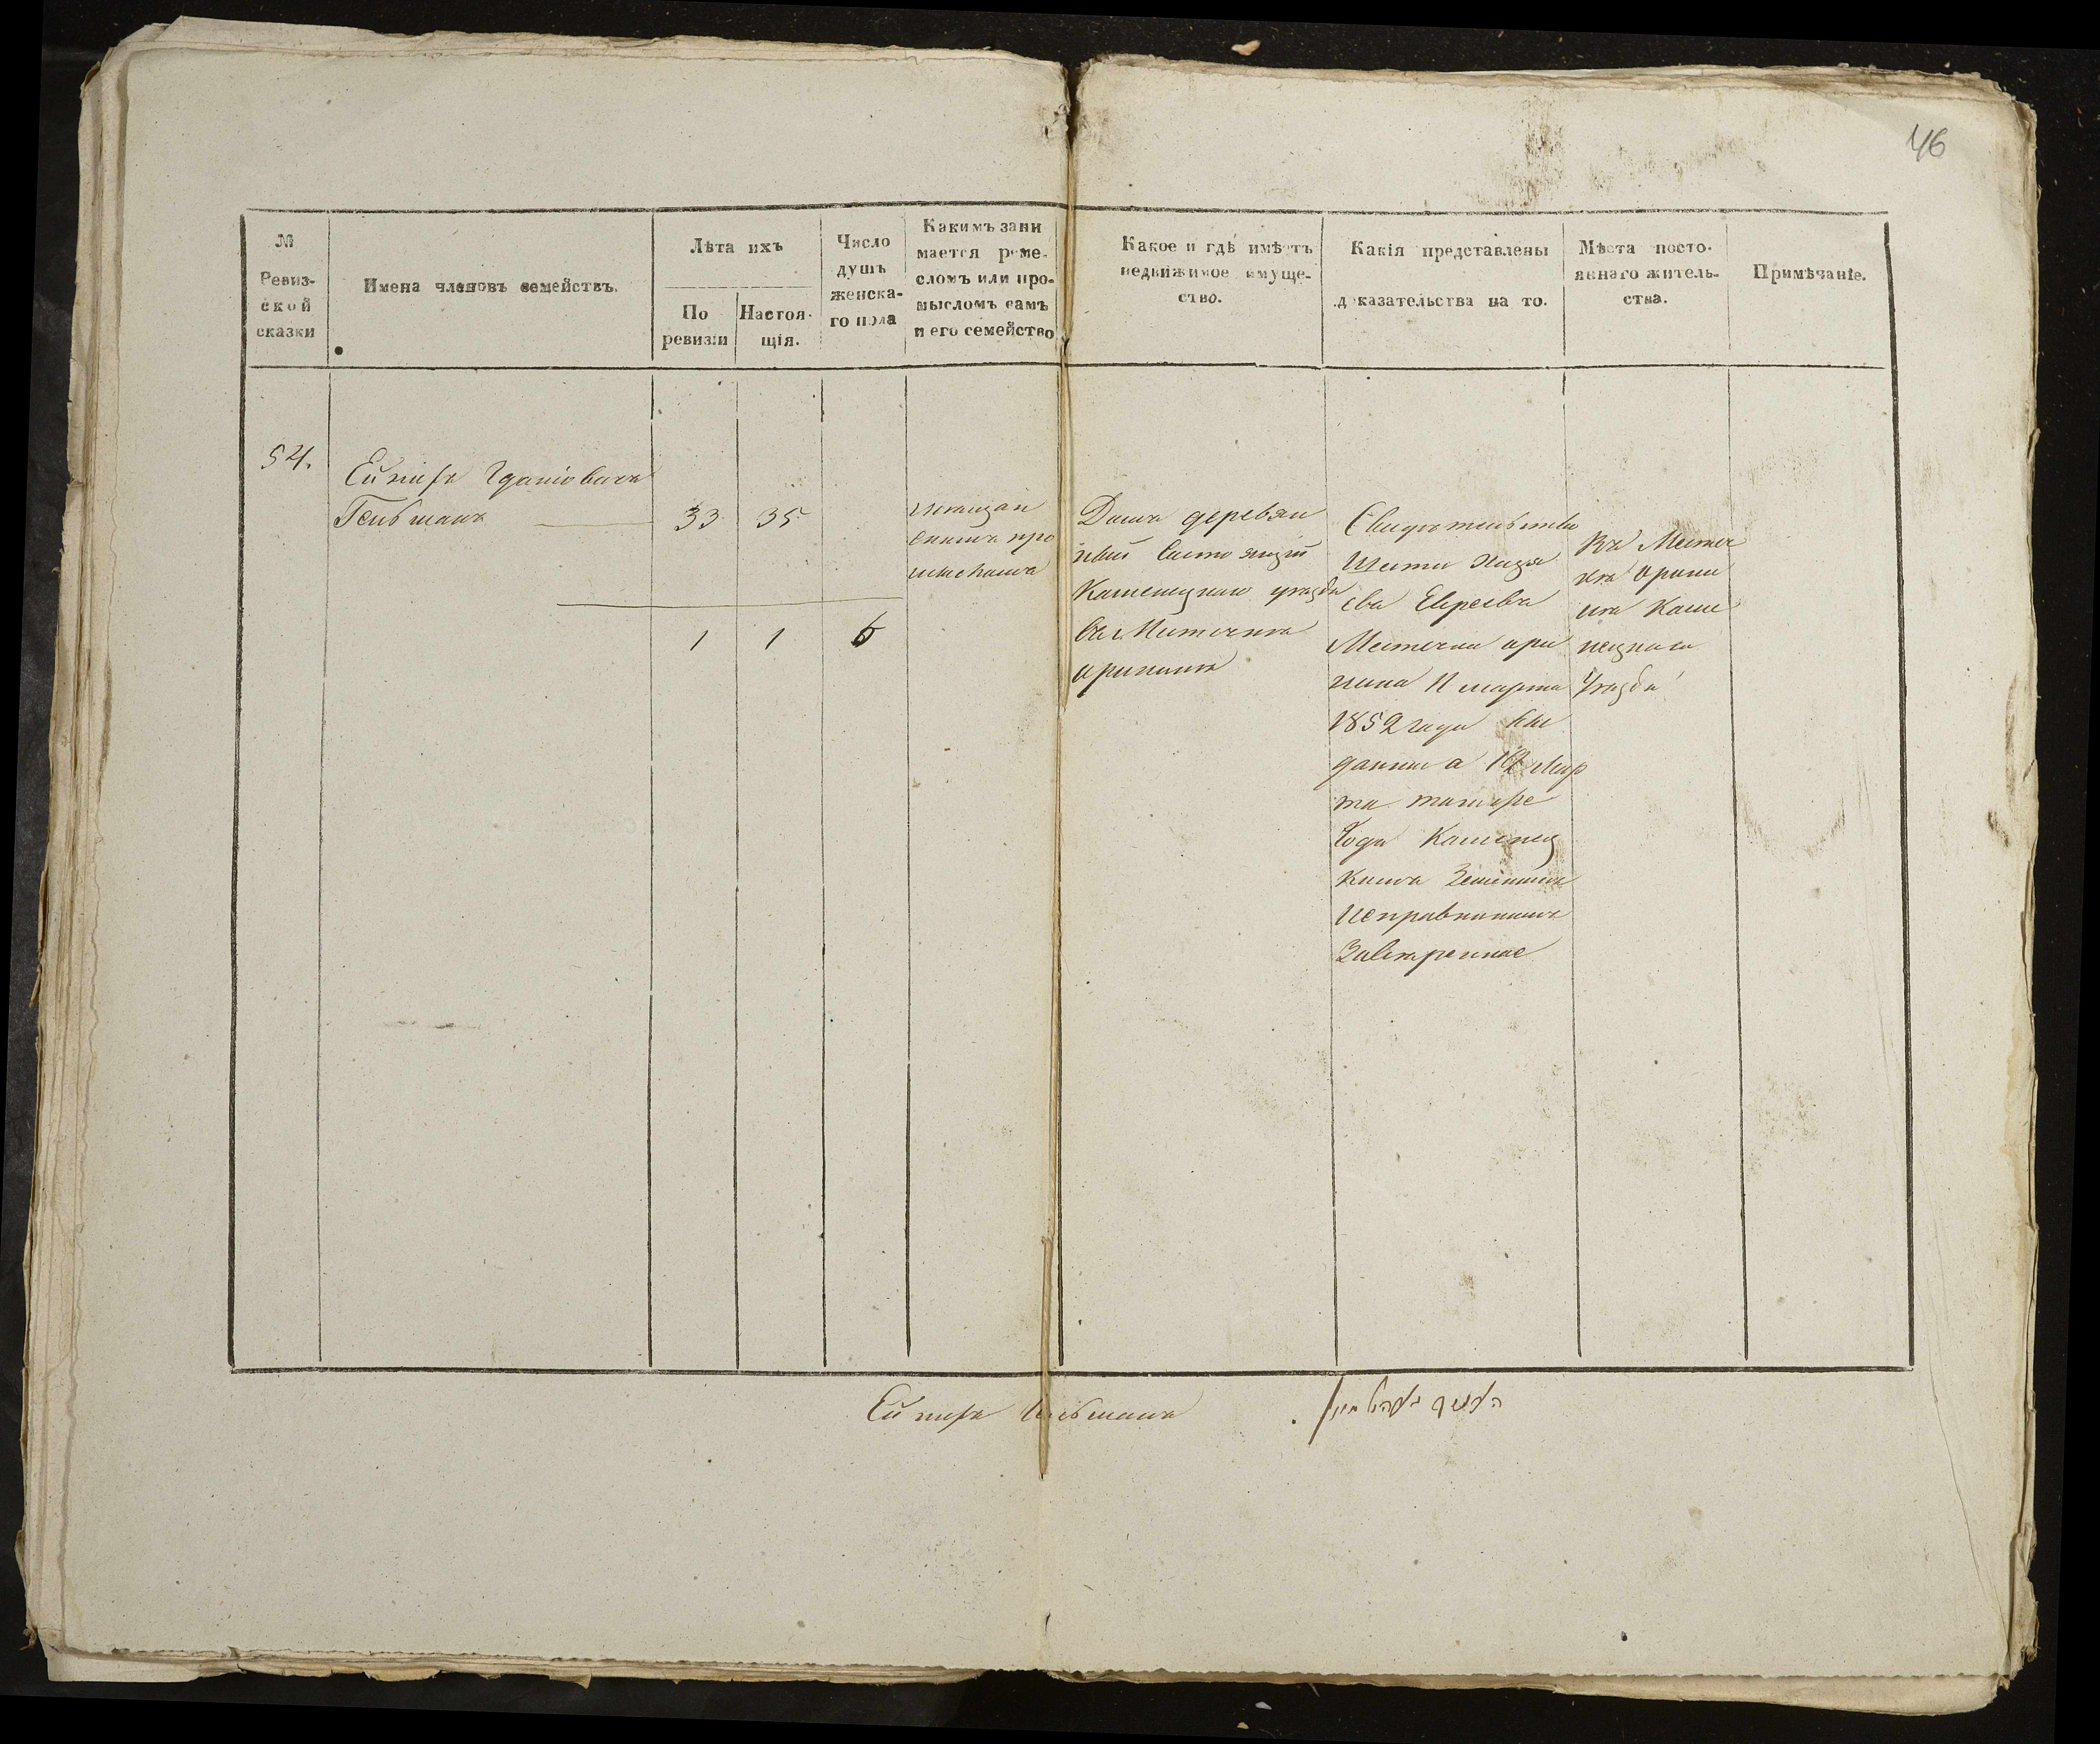 46
№
Ревиз-
ской
сказки
Имена членовъ семействъ.
Лѣта ихъ
По
ревизіи
Настоя-
щія.
Число
душъ
женска-
го пола
Какимъ зани
мается реме-
сломъ или про-
мысломъ самъ
и его семейство
Какое и гдѣ имѣетъ
недвижимое имуще-
ство.
Какія представлены
доказательства на то.
Мѣста посто-
яннаго житель-
ства.
Примѣчаніе.
54.
Гельманъ
33 35
мещан
скимъ про
мысломъ
1 1 6
Домъ деревян
ный состоящій
Каменецкаго уѣзда
въ Местечке
оринине
Свидетельство
шести хозя
евъ Евреевъ
Местечка ори
нина 11 марта
1852 года вы
данное а 12 мар
та тогоже
Года Каменец
кимъ Земскимъ
Исправникомъ
Засвѣренное
Въ Местеч
ке орини
не Каме
нецкаго
Уѣзда
Гельманъ